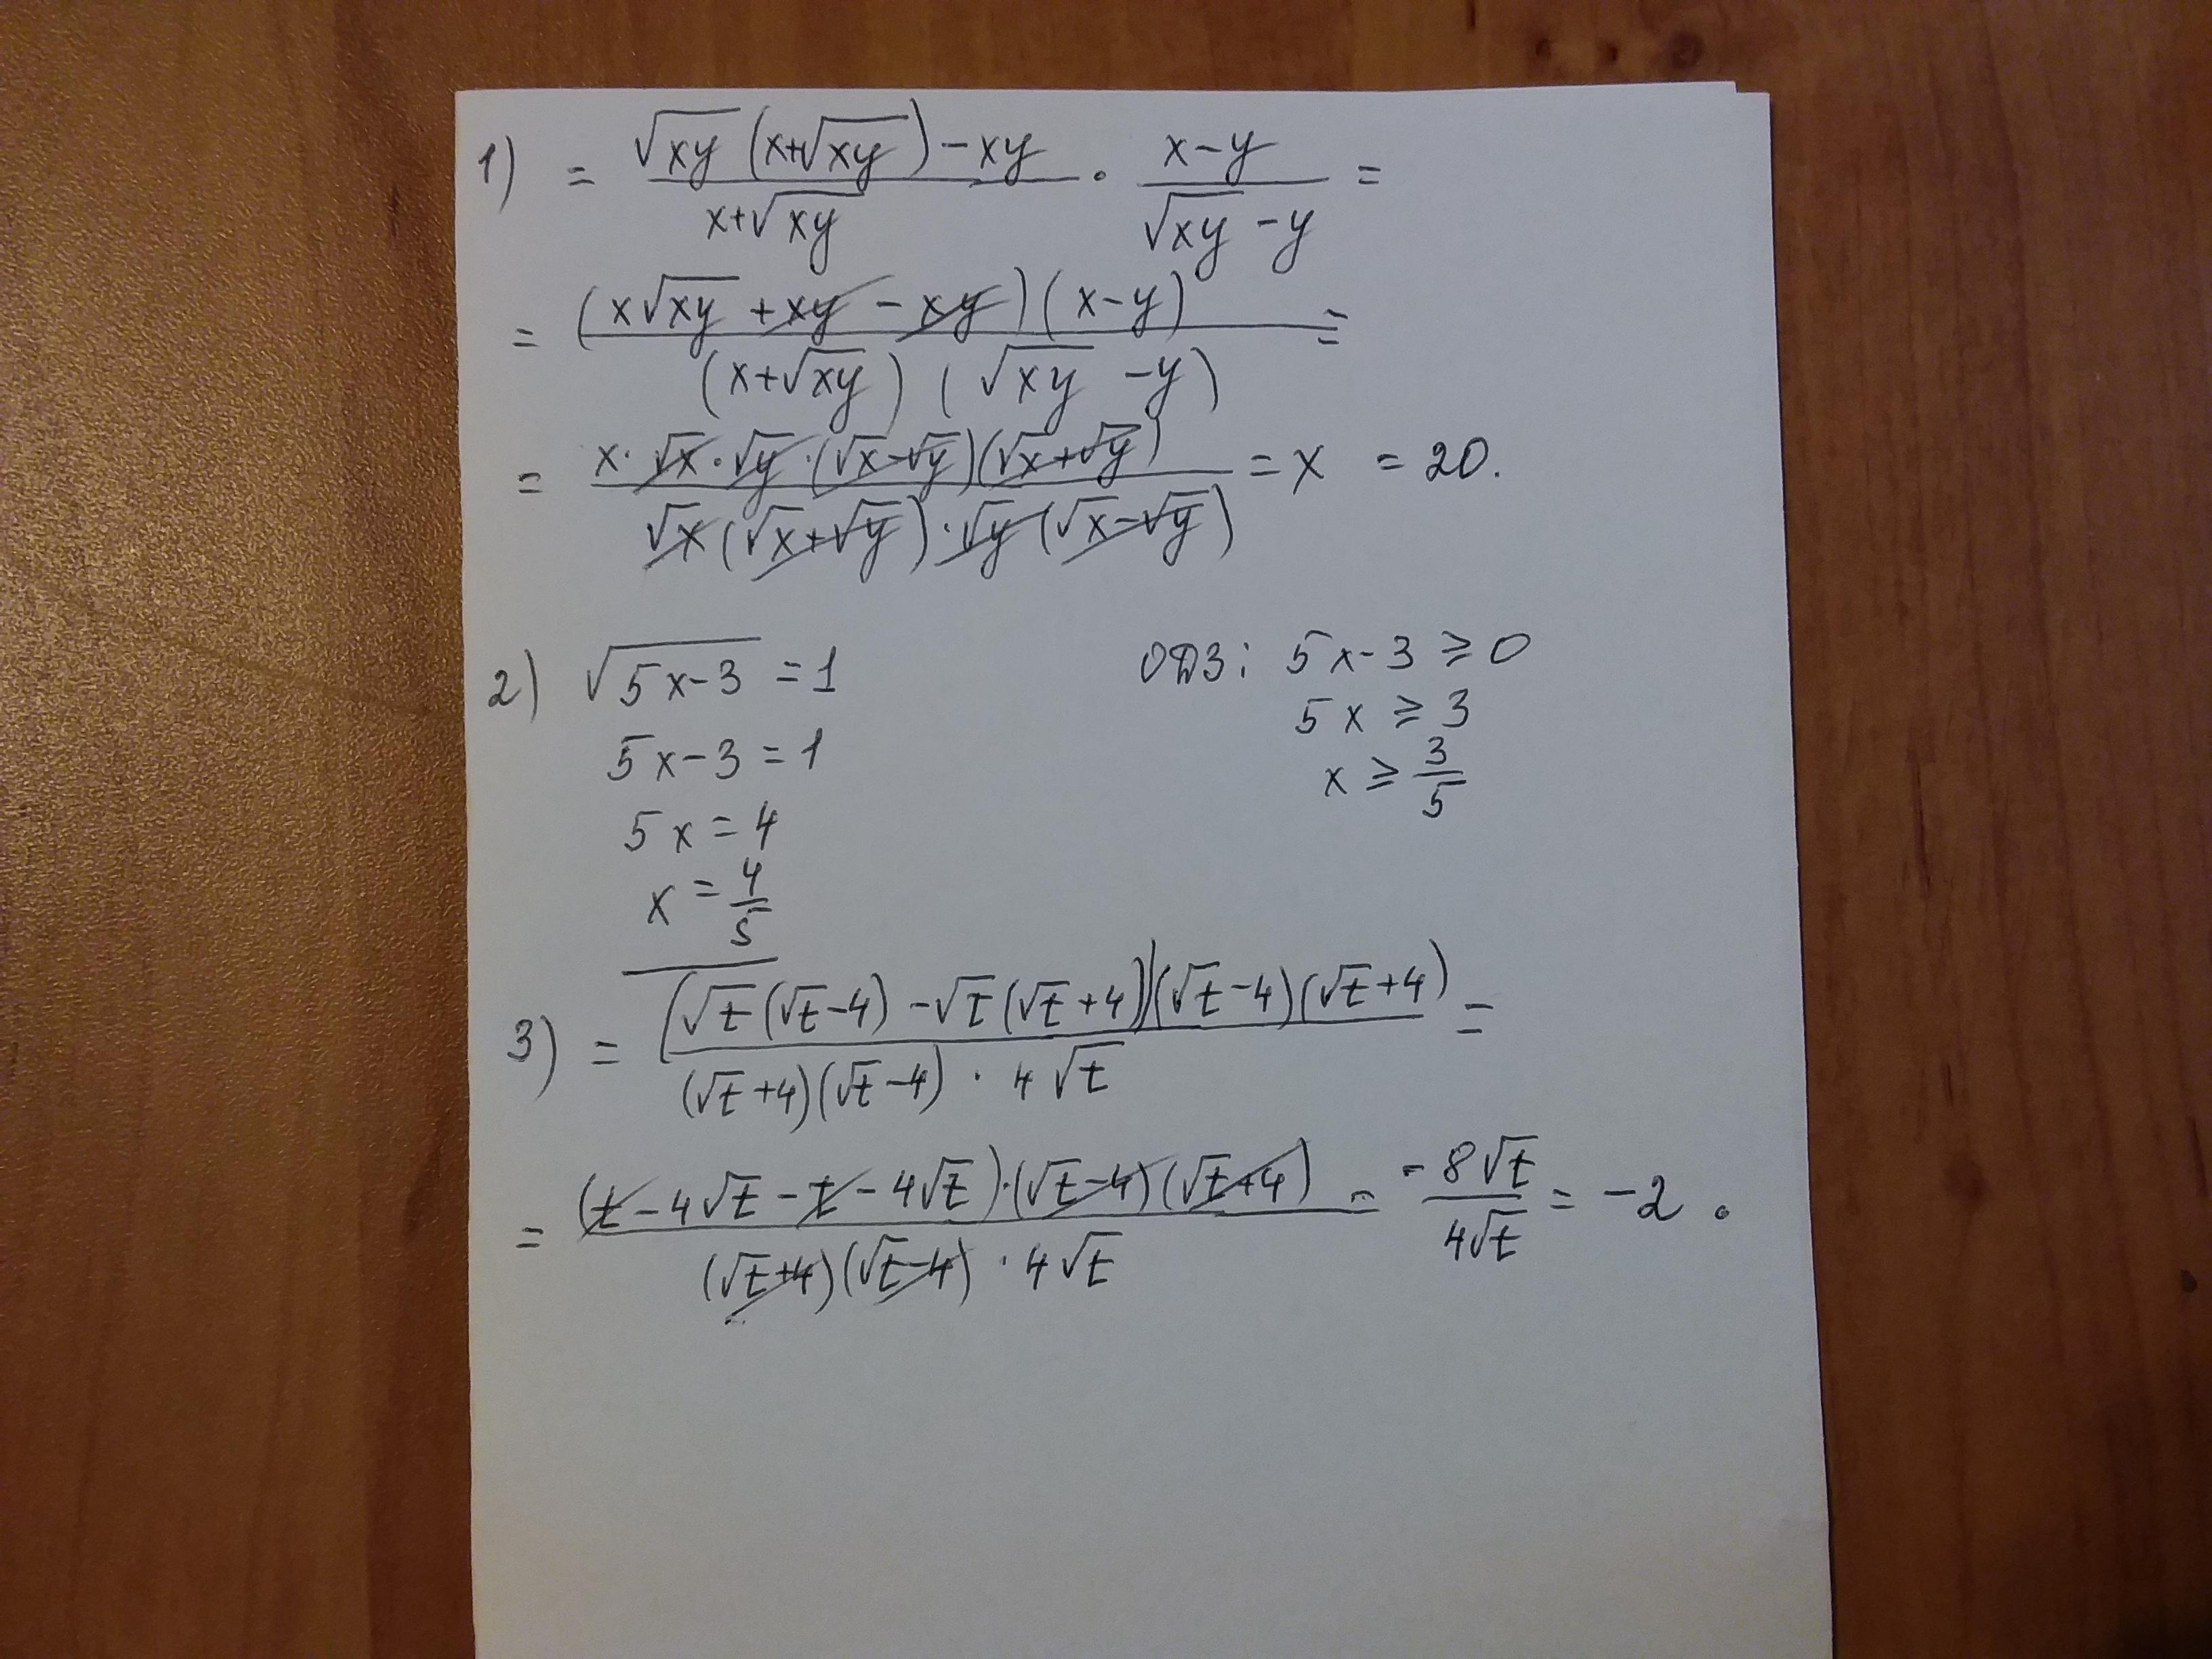 1) = (√xy (x+√xy) − xy) / (x+√xy) · (x−y) / (√xy − y) =
= (x√xy + xy − xy)(x−y) / (x+√xy)(√xy − y) =
= x·√x·√y·(√x−√y)(√x+√y) / √x(√x+√y)·√y(√x−√y) = x = 20.
2) √5x−3 = 1
5x−3 = 1
5x = 4
x = 4/5
ОДЗ: 5x−3 ⩾ 0
5x ⩾ 3
x ⩾ 3/5
3) = (√t(√t−4) − √t(√t+4))(√t−4)(√t+4) / (√t+4)(√t−4) · 4√t =
= (t − 4√t − t − 4√t)·(√t−4)(√t+4) / (√t+4)(√t−4) · 4√t = −8√t / 4√t = −2.